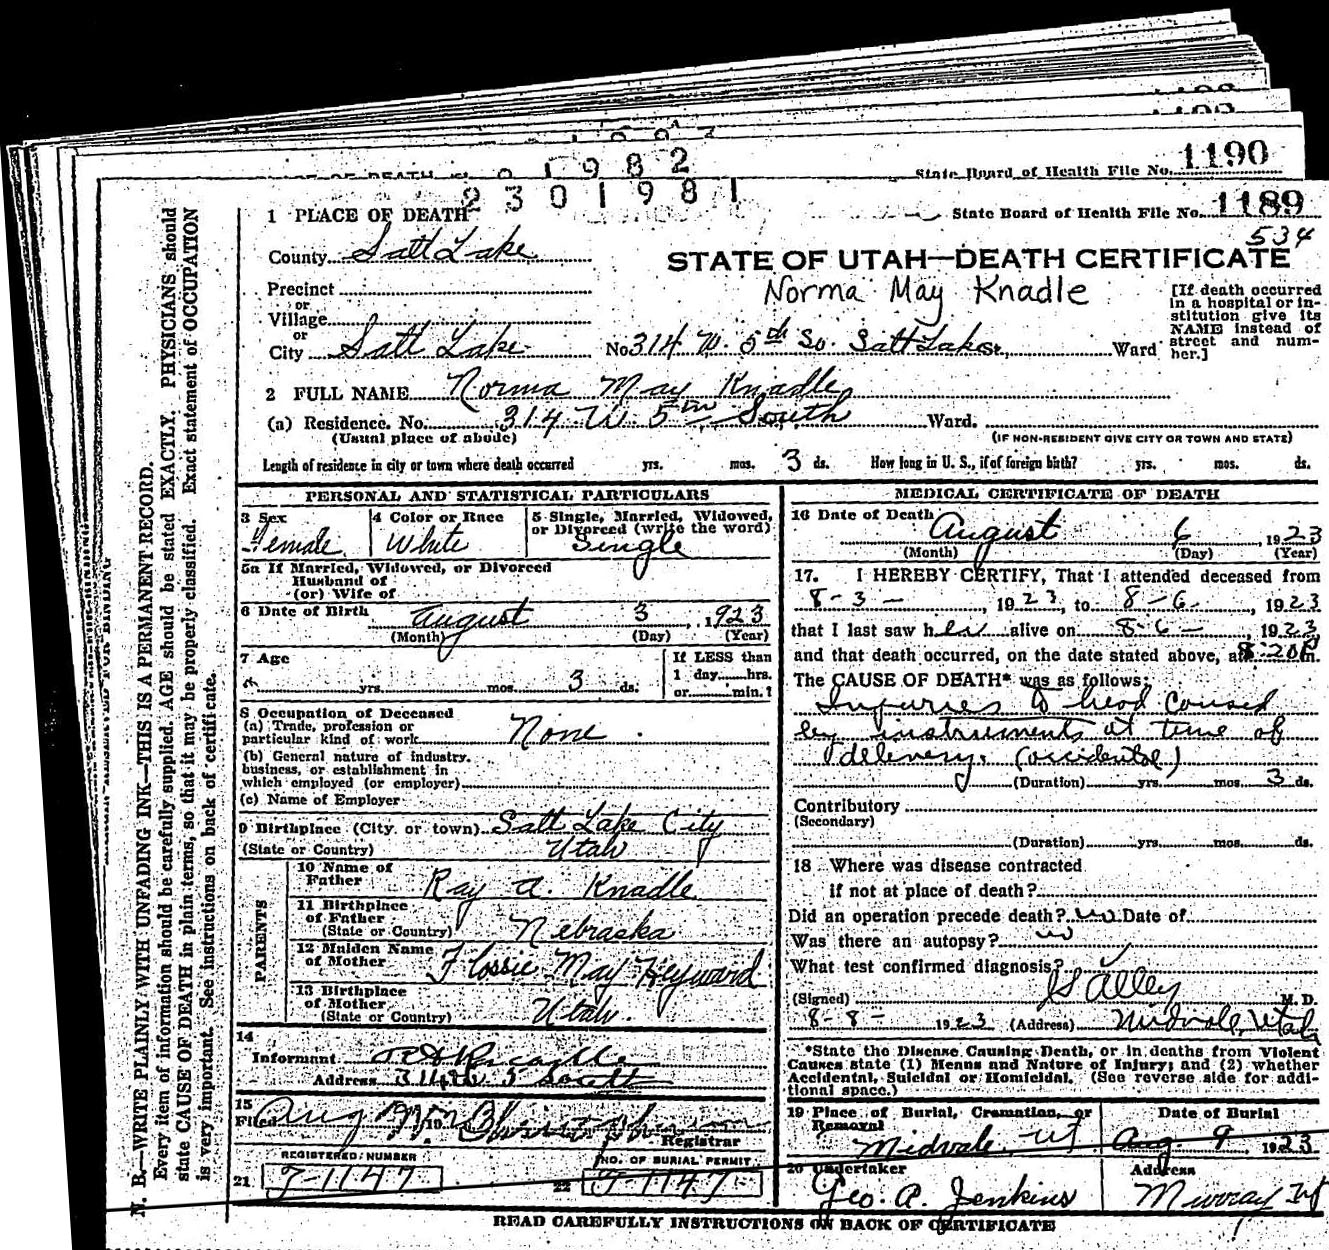 1190
State Board of Health File No.
9 1 9 8 2
2 3 0 1 9 8 1
1 PLACE OF DEATH
State Board of Health File No. 1189
534
County Salt Lake
STATE OF UTAH—DEATH CERTIFICATE
Precinct
Norma May Knadle
or
Village
or
City Salt Lake
No 314 W. 5th So. Salt Lake St., Ward
[If death occurred
in a hospital or in-
stitution give its
NAME instead of
street and num-
ber.]
2 FULL NAME Norma May Knadle
(a) Residence. No. 314 W. 5th South Ward.
(Usual place of abode)
(IF NON-RESIDENT GIVE CITY OR TOWN AND STATE)
Length of residence in city or town where death occurred yrs. mos. 3 ds. How long in U. S., if of foreign birth? yrs. mos. ds.
PERSONAL AND STATISTICAL PARTICULARS
3 Sex
Female
4 Color or Race
White
5 Single, Married, Widowed,
or Divorced (write the word)
Single
5a If Married, Widowed, or Divorced
Husband of
(or) Wife of
6 Date of Birth August 3, 1923
(Month) (Day) (Year)
7 Age
yrs. mos. 3 ds.
If LESS than
1 day hrs.
or min.?
8 Occupation of Deceased
(a) Trade, profession or
particular kind of work None
(b) General nature of industry,
business, or establishment in
which employed (or employer)
(c) Name of Employer
9 Birthplace (City or town) Salt Lake City
(State or Country) Utah
PARENTS
10 Name of
Father Ray A. Knadle
11 Birthplace
of Father
(State or Country) Nebraska
12 Maiden Name
of Mother Flossie May Heyward
13 Birthplace
of Mother
(State or Country) Utah.
14
Informant
Address 314 W 5 South
15
Filed Aug
Registrar
REGISTERED NUMBER
21
NO. OF BURIAL PERMIT
22
MEDICAL CERTIFICATE OF DEATH
16 Date of Death August 6, 1923
(Month) (Day) (Year)
17. I HEREBY CERTIFY, That I attended deceased from
8-3-, 1923, to 8-6-, 1923
that I last saw her alive on 8-6-, 1923
and that death occurred, on the date stated above, at 8:20 P m.
The CAUSE OF DEATH* was as follows:
Injuries to head caused
by instruments at time of
delivery. (accidental)
(Duration) yrs. mos. 3 ds.
Contributory
(Secondary)
(Duration) yrs. mos. ds.
18 Where was disease contracted
if not at place of death?
Did an operation precede death? no Date of
Was there an autopsy? no
What test confirmed diagnosis?
(Signed) Alley M. D.
8-8-1923 (Address) Midvale, Utah
*State the Disease Causing Death, or in deaths from Violent
Causes state (1) Means and Nature of Injury; and (2) whether
Accidental, Suicidal or Homicidal. (See reverse side for addi-
tional space.)
19 Place of Burial, Cremation, or
Removal
Midvale, Ut
Date of Burial
Aug. 9 1923
20 Undertaker
Geo. A. Jenkins
Address
Murray Ut
READ CAREFULLY INSTRUCTIONS ON BACK OF CERTIFICATE
N. B.—WRITE PLAINLY WITH UNFADING INK—THIS IS A PERMANENT RECORD.
Every item of information should be carefully supplied. AGE should be stated EXACTLY. PHYSICIANS should
state CAUSE OF DEATH in plain terms, so that it may be properly classified. Exact statement of OCCUPATION
is very important. See instructions on back of certificate.